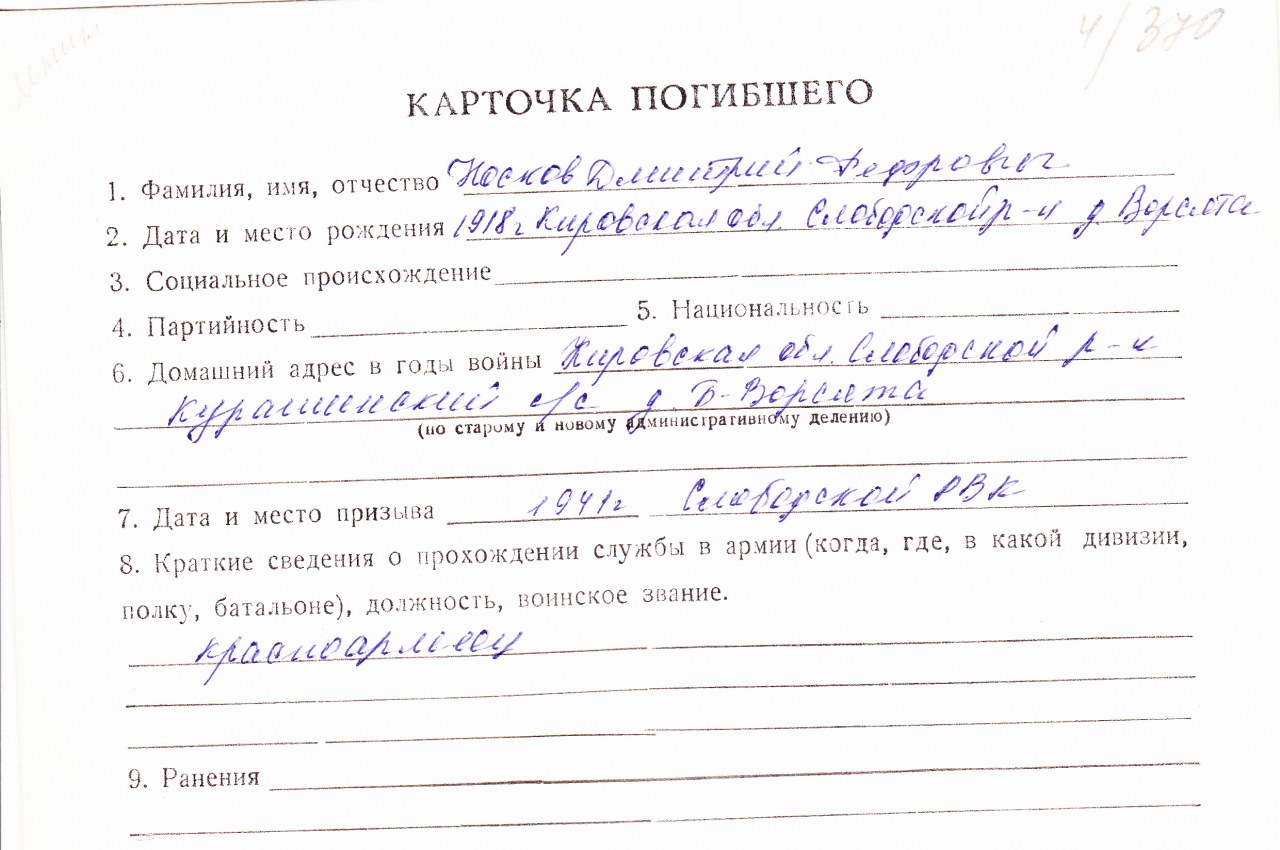 4/370
КАРТОЧКА ПОГИБШЕГО
1. Фамилия, имя, отчество Носков Дмитрий Федорович
2. Дата и место рождения 1918г Кировская обл. Слободской р-н д. Ворсята
3. Социальное происхождение
4. Партийность 5. Национальность
6. Домашний адрес в годы войны Кировская обл. Слободской р-н
с/с д. Б-Ворсята
(по старому и новому административному делению)
7. Дата и место призыва 1941г Слободской РВК
8. Краткие сведения о прохождении службы в армии (когда, где, в какой дивизии,
полку, батальоне), должность, воинское звание.
красноармеец
9. Ранения